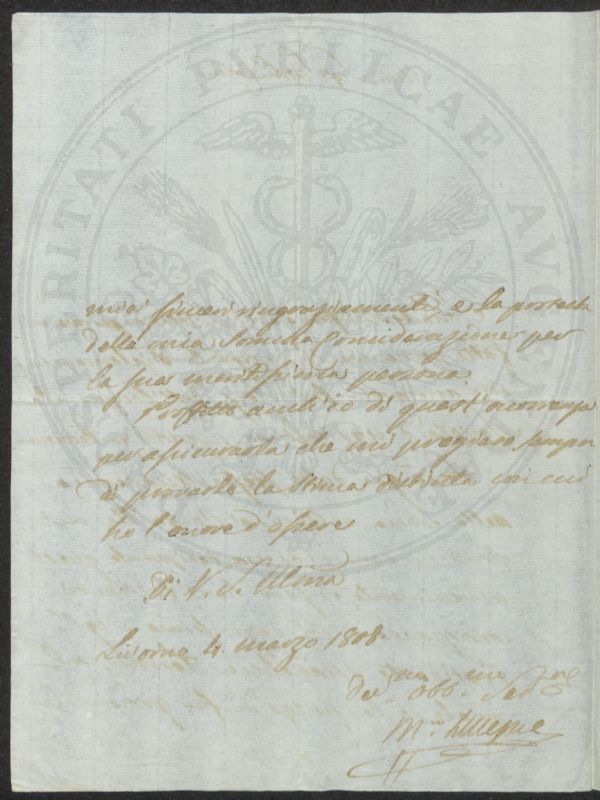 miei sinceri ringraziamenti, e la protesta
della mia somma Considerazione per
la sua meritissima persona.
Profitto anch'io di quest'occorrenza
per assicurarla che mi pregierò sempre
di provarle la stima distinta con cui
ho l'onore d'essere
Di V. S. Illma
Livorno 4. marzo 1808.
Dev.mo Obb.mo Ser.re